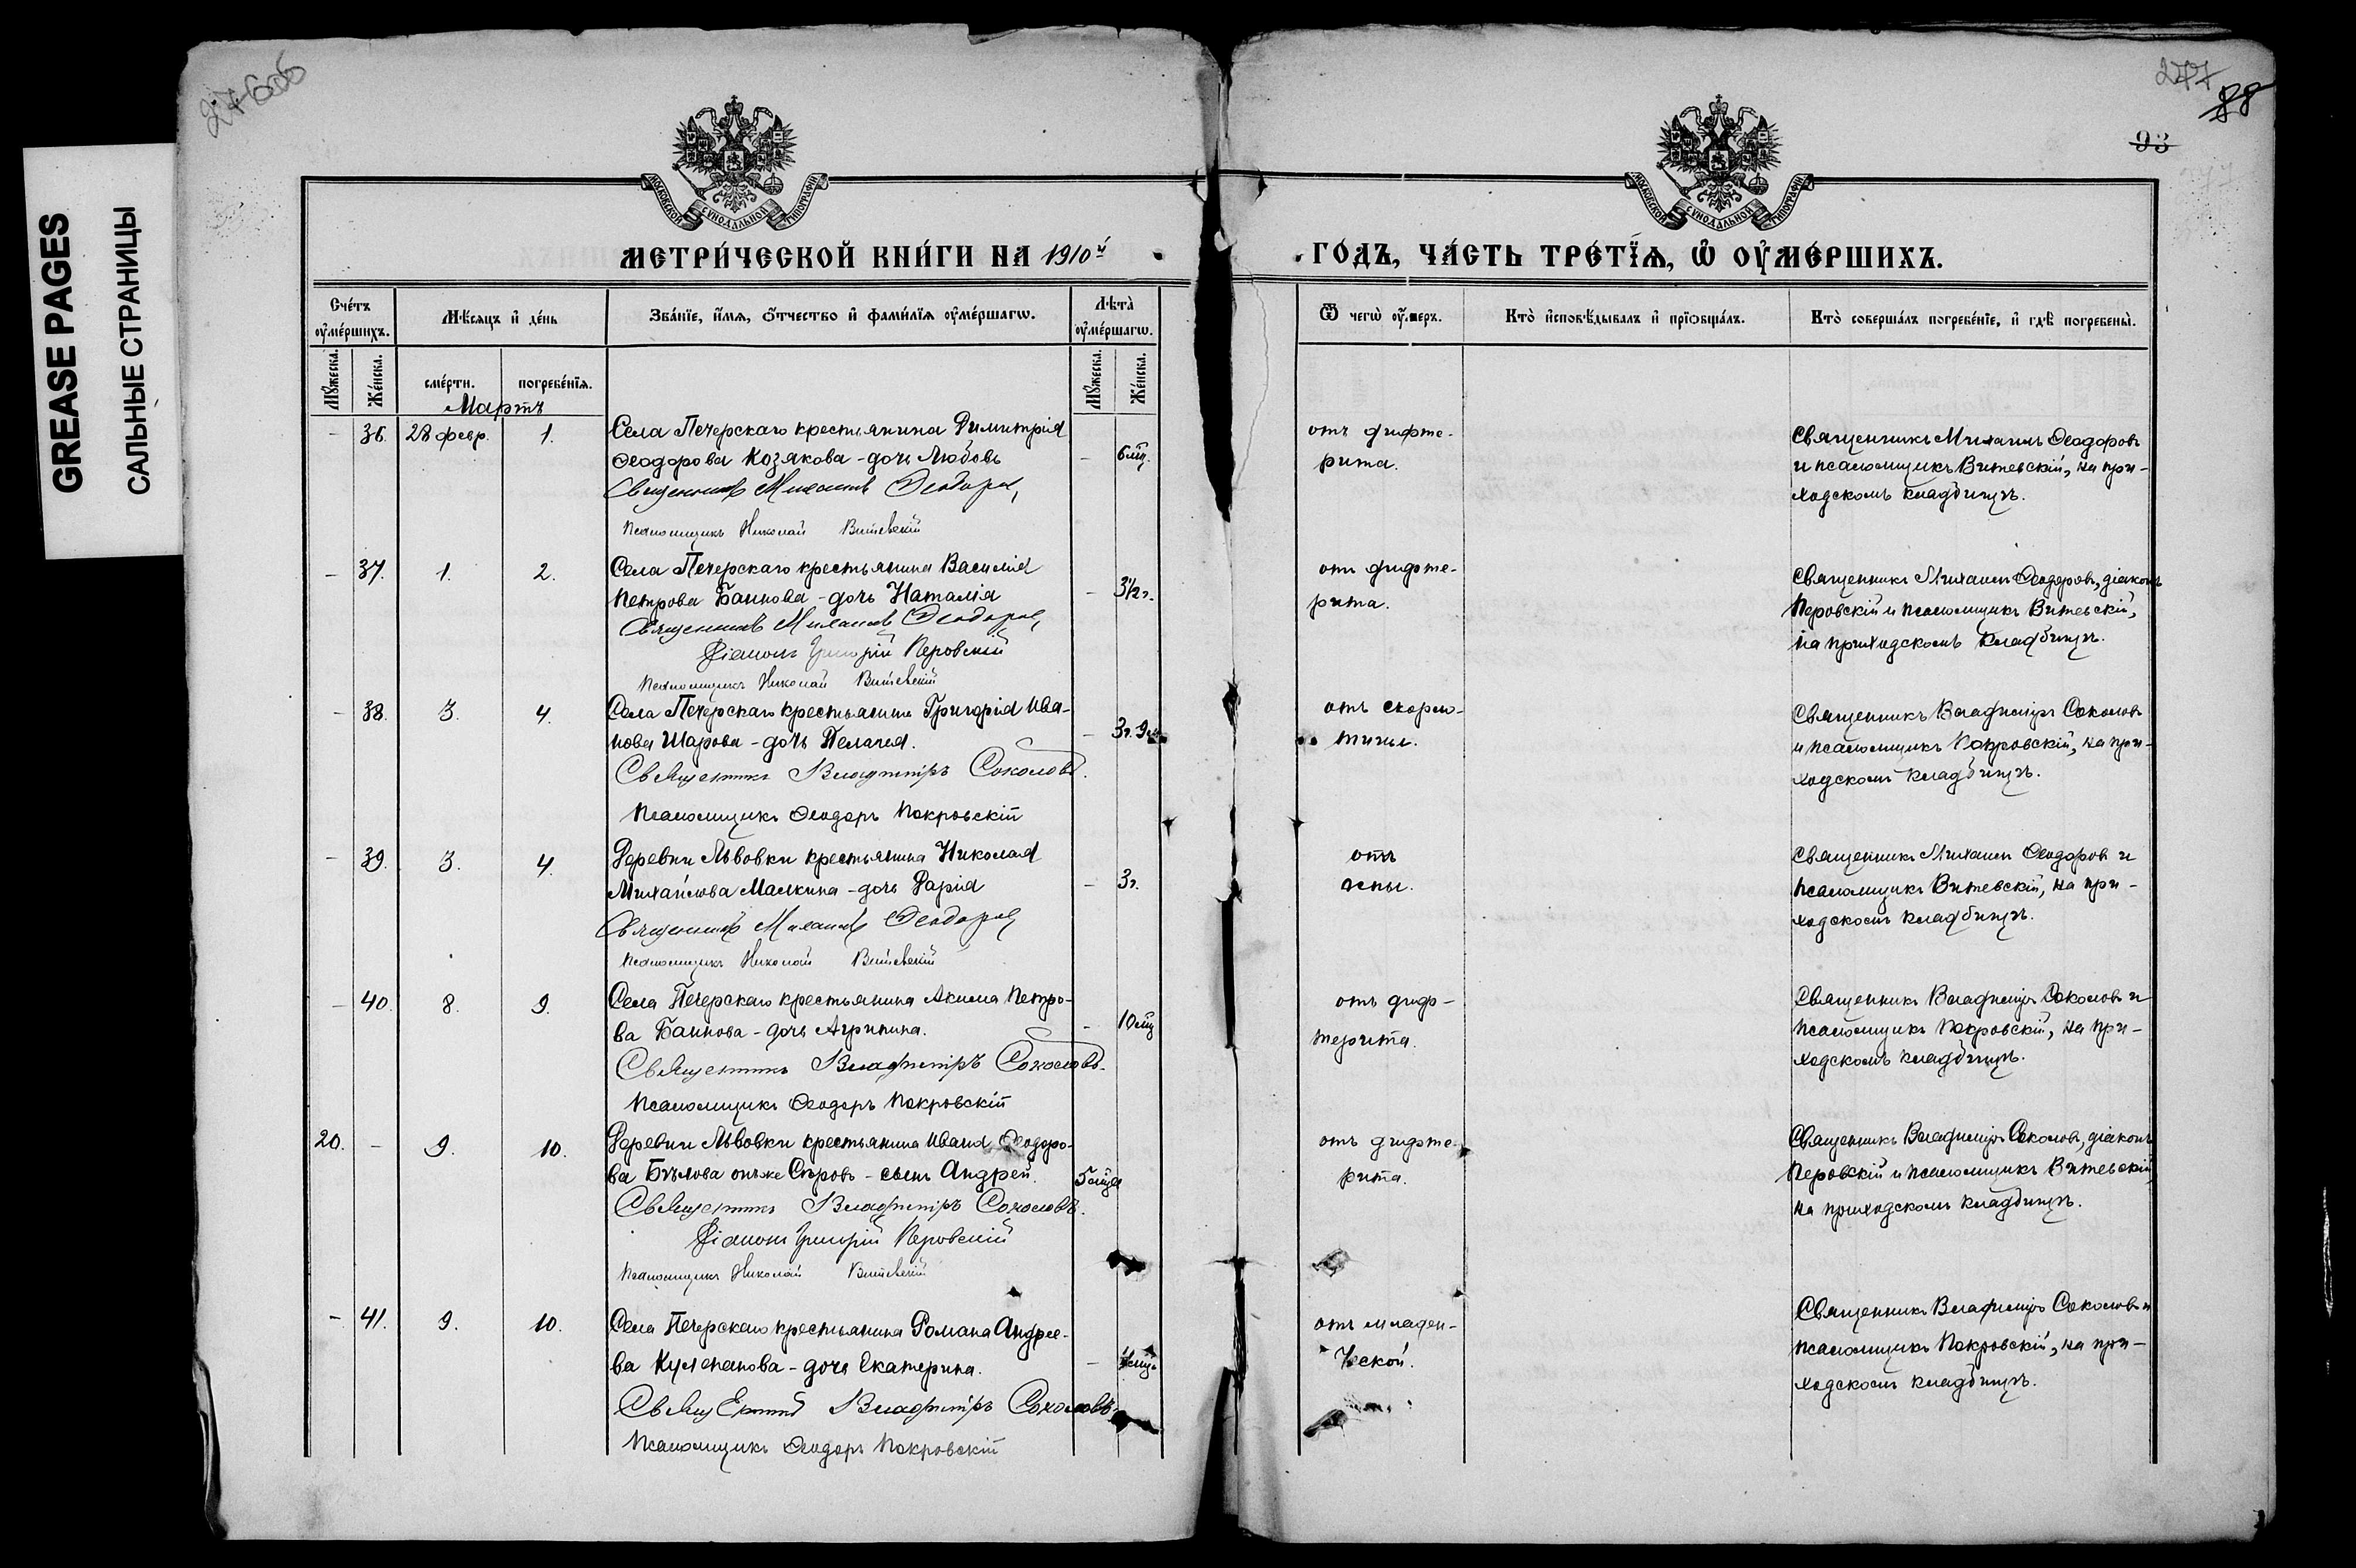 GREASE PAGES
САЛЬНЫЕ СТРАНИЦЫ
277
88
93
МОСКОВСКОЙ СУНОДАЛЬНОЙ ТИПОГРАФІИ
МОСКОВСКОЙ СУНОДАЛЬНОЙ ТИПОГРАФІИ
МЕТРИ́ЧЕСКОЙ КНИ́ГИ НА 1910й
ГО́ДЪ, ЧА́СТЬ ТРЕ́ТІѦ, Ѡ ОУМЕ́РШИХЪ.
Сче́тъ оуме́ршихъ.
Мѣ́сяцъ и де́нь
Зва́нїе, и́мѧ, о́тчество и фами́лїѧ оуме́ршагѡ.
Лѣта̀ оуме́ршагѡ.
Ѿ чегѡ̀ оу́меръ.
Кто̀ исповѣ́дывалъ и прїѡбща́лъ.
Кто̀ соверша́лъ погребе́нїе, и гдѣ̀ погребены̀.
Мꙋжеска.
Же́нска.
сме́рти.
погребе́нїѧ.
Мꙋжеска.
Же́нска.
Мартъ
- 36. 28 февр. 1. Села Печерскаго крестьянина Димитрія
Ѳеодорова Козякова - дочь Любовь - 6 мц.
Священникъ Михаилъ Ѳеодоровъ
Псаломщикъ Николай Витевскій
отъ дифте-
рита.
Священникъ Михаилъ Ѳеодоровъ
и псаломщикъ Витевскій, на при-
ходскомъ кладбищѣ.
- 37. 1. 2. Села Печерскаго крестьянина Василія
Петрова Баннова - дочь Наталія - 3½ г.
Священникъ Михаилъ Ѳеодоровъ
Діаконъ Григорій Перовскій
Псаломщикъ Николай Витевскій
отъ дифте-
рита.
Священникъ Михаилъ Ѳеодоровъ, діаконъ
Перовскій и псаломщикъ Витевскій,
на приходскомъ кладбищѣ.
- 38. 3. 4. Села Печерскаго крестьянина Григорія Ива-
нова Шарова - дочь Пелагея. - 3 г. 9 м.
Священникъ Владиміръ Соколовъ.
Псаломщикъ Ѳеодоръ Покровскій
отъ скарла-
тины.
Священникъ Владиміръ Соколовъ
и псаломщикъ Покровскій, на при-
ходскомъ кладбищѣ.
- 39. 3. 4. Деревни Львовки крестьянина Николая
Михайлова Малкина - дочь Дарія - 3 г.
Священникъ Михаилъ Ѳеодоровъ
Псаломщикъ Николай Витевскій
отъ
оспы.
Священникъ Михаилъ Ѳеодоровъ и
псаломщикъ Витевскій, на при-
ходскомъ кладбищѣ.
- 40. 8. 9. Села Печерскаго крестьянина Акима Петро-
ва Баннова - дочь Агрипина. - 10 мц
Священникъ Владиміръ Соколовъ.
Псаломщикъ Ѳеодоръ Покровскій
отъ диф-
терита.
Священникъ Владиміръ Соколовъ и
псаломщикъ Покровскій, на при-
ходскомъ кладбищѣ.
20. - 9. 10. Деревни Львовки крестьянина Ивана Ѳеодоро-
ва Бѣлова онъ же Сѣровъ - сынъ Андрей.
Священникъ Владиміръ Соколовъ.
Діаконъ Григорій Перовскій
Псаломщикъ Николай Витевскій
отъ дифте-
рита.
Священникъ Владиміръ Соколовъ, діаконъ
Перовскій и псаломщикъ Витевскій
на приходскомъ кладбищѣ.
- 41. 9. 10. Села Печерскаго крестьянина Романа Андрее-
ва Кулепанова - дочь Екатерина. -
Священникъ Владиміръ Соколовъ.
Псаломщикъ Ѳеодоръ Покровскій
отъ младен-
ческой.
Священникъ Владиміръ Соколовъ и
псаломщикъ Покровскій, на при-
ходскомъ кладбищѣ.